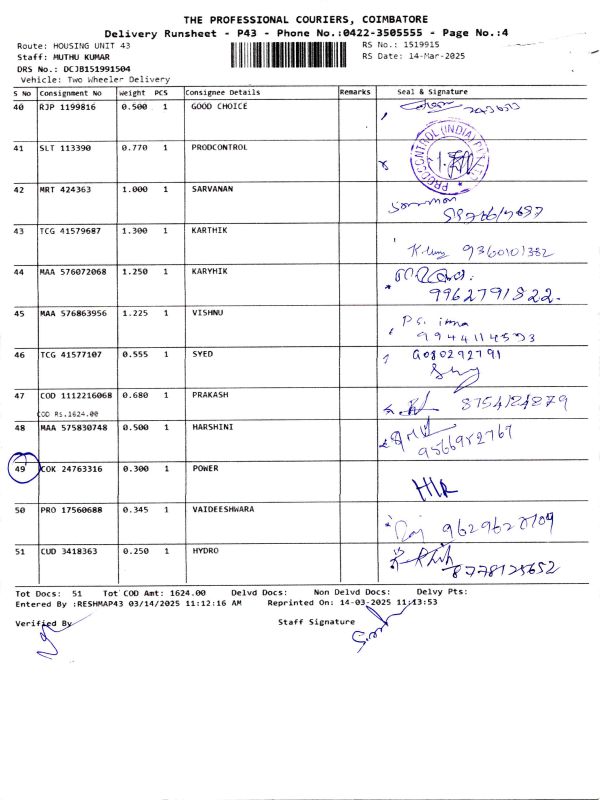 THE PROFESSIONAL COURIERS, COIMBATORE
Delivery Runsheet - P43 - Phone No.:0422-3505555 - Page No.:4
Route: HOUSING UNIT 43
RS No.: 1519915
Staff: MUTHU KUMAR
RS Date: 14-Mar-2025
DRS No.: DCJB151991504
Vehicle: Two Wheeler Delivery
S No Consignment No Weight PCS Consignee Details Remarks Seal & Signature
40 RJP 1199816 0.500 1 GOOD CHOICE
41 SLT 113390 0.770 1 PRODCONTROL
PRODCONTROL (INDIA)
42 MRT 424363 1.000 1 SARVANAN
43 TCG 41579687 1.300 1 KARTHIK
9360101382
44 MAA 576072068 1.250 1 KARYHIK
9962791822.
45 MAA 576863956 1.225 1 VISHNU
9944114593
46 TCG 41577107 0.555 1 SYED
9080292791
47 COD 1112216068 0.680 1 PRAKASH
COD RS.1624.00
8754124279
48 MAA 575830748 0.500 1 HARSHINI
9566952767
49 COK 24763316 0.300 1 POWER
50 PRO 17560688 0.345 1 VAIDEESHWARA
51 CUD 3418363 0.250 1 HYDRO
8778125652
Tot Docs: 51 Tot COD Amt: 1624.00 Delvd Docs: Non Delvd Docs: Delvy Pts:
Entered By :RESHMAP43 03/14/2025 11:12:16 AM Reprinted On: 14-03-2025 11:13:53
Verified By
Staff Signature